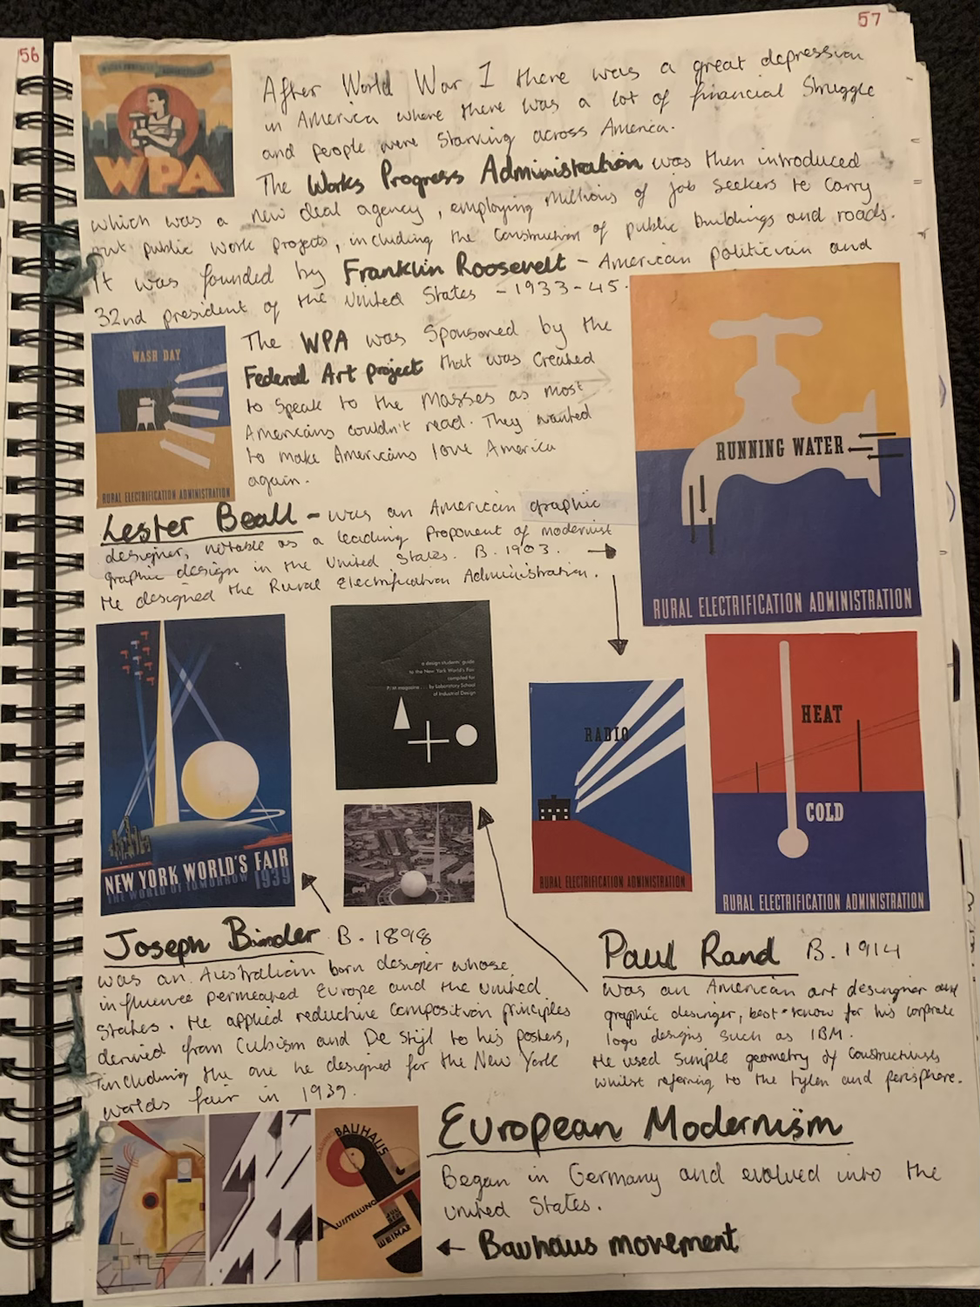 56
57
After World War I there was a great depression
in America where there was a lot of financial struggle
and people were starving across America.
WPA
The Works Progress Administration was then introduced
which was a new deal agency, employing millions of job seekers to carry
out public work projects, including the construction of public buildings and roads.
It was founded by Franklin Roosevelt - American politician and
32nd president of the United States - 1933-45.
WASH DAY
RURAL ELECTRIFICATION ADMINISTRATION
The WPA was sponsored by the
Federal Art project that was created
to speak to the masses as most
Americans couldn't read. They wanted
to make Americans love America
again.
RUNNING WATER
RURAL ELECTRIFICATION ADMINISTRATION
Lester Beall - was an American graphic
designer, notable as a leading proponent of modernist
graphic design in the United States. B. 1903.
He designed the Rural Electrification Administration.
NEW YORK WORLD'S FAIR
THE WORLD OF TOMORROW 1939
a design students' guide
to the New York World's Fair
compiled for
P/M magazine by Laboratory School
of Industrial Design
RADIO
RURAL ELECTRIFICATION ADMINISTRATION
HEAT
COLD
RURAL ELECTRIFICATION ADMINISTRATION
Joseph Binder B. 1898
was an Australian born designer whose
influence permeated Europe and the United
States. He applied reductive composition principles
derived from Cubism and De Stijl to his posters,
including the one he designed for the New York
worlds fair in 1939.
Paul Rand B. 1914
was an American art desingner and
graphic desinger, best-know for his corporate
logo designs such as IBM.
He used simple geometry of constructivists
whilst referring to the tylon and perisphere.
BAUHAUS
AUSSTELLUNG
WEIMAR
European Modernism
Began in Germany and evolved into the
United States.
Bauhaus movement